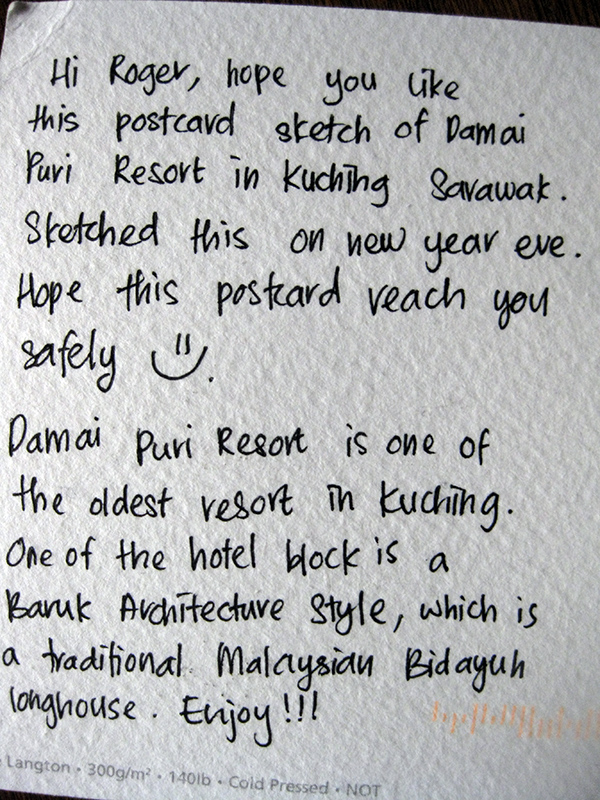 Hi Roger, hope you like
this postcard sketch of Damai
Puri Resort in Kuching Sarawak.
Sketched this on new year eve.
Hope this postcard reach you
safely
Damai Puri Resort is one of
the oldest resort in Kuching.
One of the hotel block is a
Baruk Architecture Style, which is
a traditional Malaysian Bidayuh
longhouse. Enjoy!!!
Langton • 300g/m² • 140lb • Cold Pressed • NOT